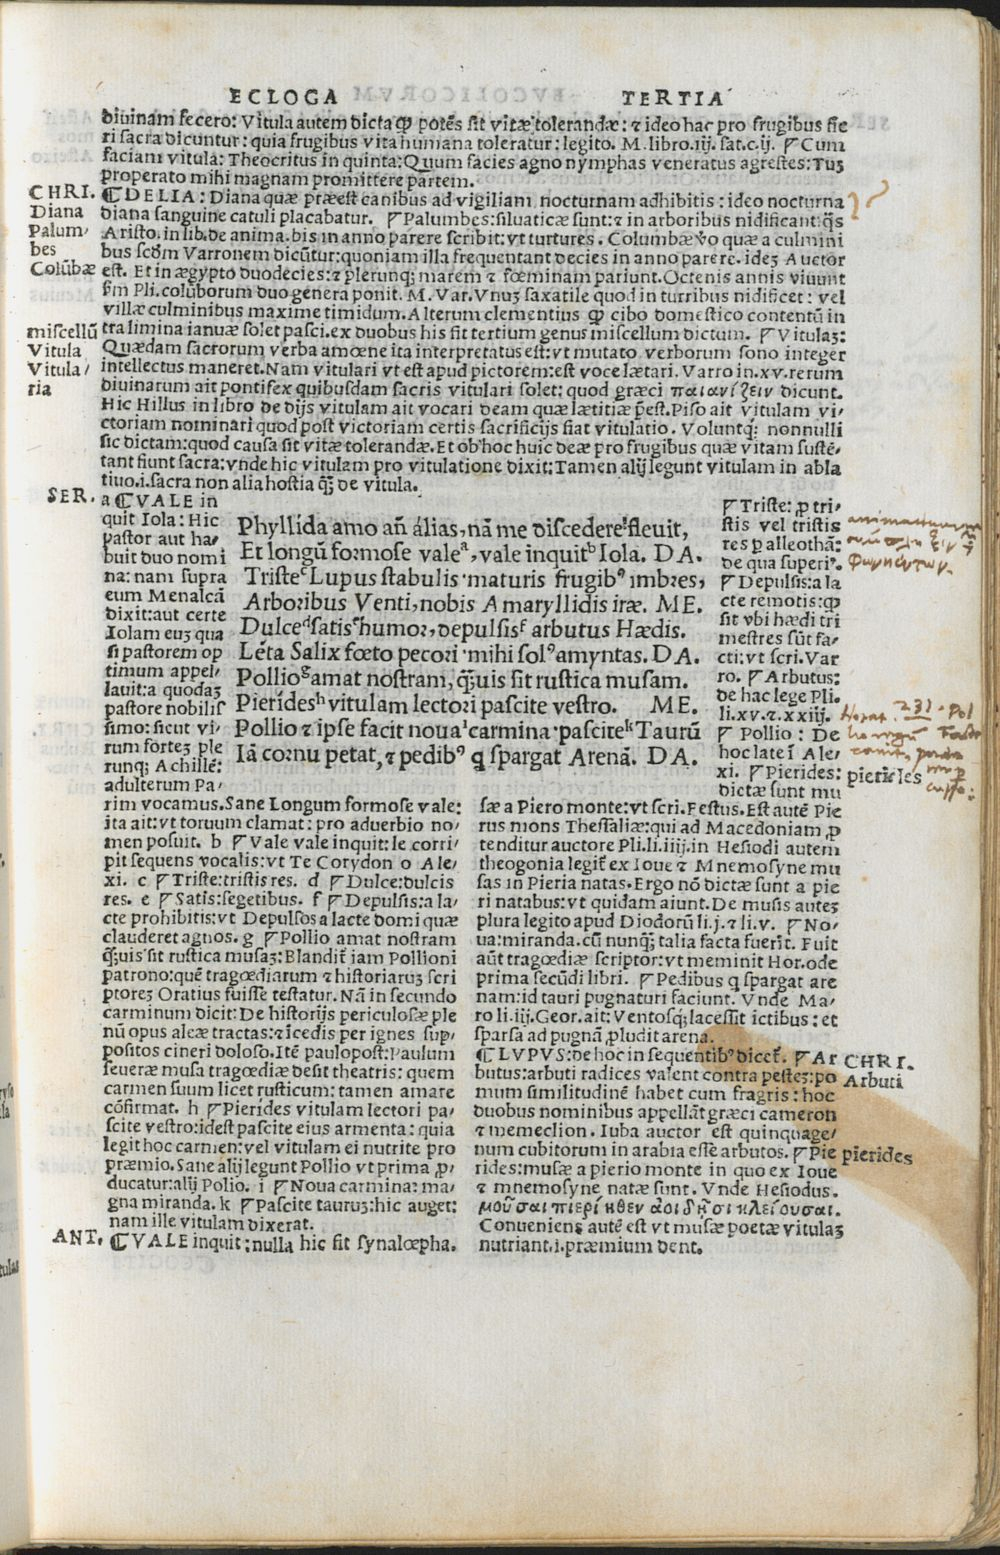 ECLOGA TERTIA
diuinam fecero: Vitula autem dicta ꝙ potēs sit vitæ tolerandæ: ⁊ ideo hac pro frugibus fie
ri sacra dicuntur: quia frugibus vita humana toleratur: legito. M. libro.iij. sat.c.ij. ¶Cum
faciam vitula: Theocritus in quinta: Quum facies agno nymphas veneratus agrestes: Tuꝫ
properato mihi magnam promittere partem.
CHRI.
Diana
Palum/
bes
Colūbæ
miscellū
Vitula
Vitula/
ria
¶DELIA: Diana quæ præest canibus ad vigiliam nocturnam adhibitis: ideo nocturna
diana sanguine catuli placabatur. ¶Palumbes: siluaticæ sunt: ⁊ in arboribus nidificant: q̄s
Aristo. in lib. de anima. bis in anno parere scribit: vt turtures. Columbæ v̊o quæ a culmini
bus scd̄m Varronem dicūtur: quoniam illa frequentant decies in anno parere. ideꝫ Auctor
est. Et in ægypto duodecies: ⁊ plerunq; marem ⁊ fœminam pariunt. Octenis annis viuunt
fm Pli. colūborum duo genera ponit. M. Var. Vnuꝫ saxatile quod in turribus nidificet: vel
villæ culminibus maxime timidum. Alterum clementius ꝙ cibo domestico contentū in
tra limina ianuæ solet pasci. ex duobus his fit tertium genus miscellum dictum. ¶Vitulaꝫ:
Quædam sacrorum verba amœne ita interpretatus est: vt mutato verborum sono integer
intellectus maneret. Nam vitulari vt est apud pictorem: est voce lætari. Varro in.xv. rerum
diuinarum ait pontifex quibusdam sacris vitulari solet: quod græci παιανίζειν dicunt.
Hic Hillus in libro de dijs vitulam ait vocari deam quæ lætitiæ p̄est. Piso ait vitulam vi/
ctoriam nominari quod post victoriam certis sacrificijs fiat vitulatio. Voluntq; nonnulli
sic dictam: quod causa sit vitæ tolerandæ. Et ob hoc huic deæ pro frugibus quæ vitam sustē/
tant fiunt sacra: vnde hic vitulam pro vitulatione dixit: Tamen alij legunt vitulam in abla
tiuo.i. sacra non alia hostia q̄; de vitula.
SER.
a ¶VALE in
quit Iola: Hic
pastor aut ha/
buit duo nomi
na: nam supra
eum Menalcā
dixit: aut certe
Iolam euꝫ qua
si pastorem op
timum appel/
lauit: a quodaꝫ
pastore nobilis
simo: sicut vi/
rum forteꝫ ple
runq; Achillē:
adulterum Pa/
rim vocamus. Sane Longum formose vale:
ita ait: vt toruum clamat: pro aduerbio no/
men posuit. b ¶Vale vale inquit: le corri/
pit sequens vocalis: vt Te Corydon o Ale/
xi. c ¶Triste: tristis res. d ¶Dulce: dulcis
res. e ¶Satis: segetibus. f ¶Depulsis: a la/
cte prohibitis: vt Depulsos a lacte domi quæ
clauderet agnos. g ¶Pollio amat nostram
q̄;uis sit rustica musaꝫ: Blandit̄ iam Pollioni
patrono: quē tragœdiarum ⁊ historiaruꝫ scri
ptoreꝫ Oratius fuisse testatur. Nā in secundo
carminum dicit: De historijs periculosæ ple
nū opus aleæ tractas: ⁊ īcedis per ignes sup/
positos cineri doloso. Itē paulopost: Paulum
seueræ musa tragœdiæ desit theatris: quem
carmen suum licet rusticum: tamen amare
cōfirmat. h ¶Pierides vitulam lectori pa/
scite vestro: idest pascite eius armenta: quia
legit hoc carmen: vel vitulam ei nutrite pro
præmio. Sane alij legunt Pollio vt prima p̱/
ducatur: alij Polio. i ¶Noua carmina: ma/
gna miranda. k ¶Pascite tauruꝫ: hic auget:
nam ille vitulam dixerat.
ANT. ¶VALE inquit: nulla hic fit synalœpha.
Phyllida amo an̄ álias, nā me discedere fleuit,
Et longū formose valeᵃ, vale inquitᵇ Iola. DA.
Tristeᶜ Lupus stabulis maturis frugibꝰ imbres,
Arboribus Venti, nobis Amaryllidis iræ. ME.
Dulceᵈ satisᵉ humor, depulsisᶠ arbutus Hædis.
Lēta Salix fœto pecori mihi solꝰ amyntas. DA.
Pollioᵍ amat nostram, q̄;uis sit rustica musam.
Pieridesʰ vitulam lectori pascite vestro. ME.
Pollio ⁊ ipse facit nouaⁱ carmina pasciteᵏ Taurū
Iā cornu petat, ⁊ pedibꝰ q spargat Arenā. DA.
¶Triste: p̱ tri/
stis vel tristis
res ꝑ alleothā:
de qua superiꝰ.
¶Depulsis: a la
cte remotis: ꝙ
sit vbi hædi tri
mestres sūt fa/
cti: vt scri. Var
ro. ¶Arbutus:
de hac lege Pli.
li.xv.⁊.xxiiij.
¶Pollio: De
hoc late ī Ale/
xi. ¶Pierides:
dictæ sunt mu
pierides
sæ a Piero monte: vt scri. Festus. Est autē Pie
rus mons Thessaliæ: qui ad Macedoniam p̱
tenditur auctore Pli. li.iiij. in Hesiodi autem
theogonia legit̄ ex Ioue ⁊ Mnemosyne mu
sas in Pieria natas. Ergo nō dictæ sunt a pie
ri natabus: vt quidam aiunt. De musis auteꝫ
plura legito apud Diodorū li.j.⁊ li.v. ¶No/
ua: miranda. cū nunq̄; talia facta fuerīt. Fuit
aūt tragœdiæ scriptor: vt meminit Hor. ode
prima secūdi libri. ¶Pedibus q spargat are
nam: id tauri pugnaturi faciunt. Vnde Ma/
ro li.iij. Geor. ait: Ventosq; lacessit ictibus: et
sparsa ad pugnā p̱ludit arena.
CHRI.
¶LVPVS: de hoc in sequentibꝰ dicet̄. ¶Ar
Arbuti
butus: arbuti radices valent contra pesteꝫ: po
mum similitudinē habet cum fragris: hoc
duobus nominibus appellāt græci cameron
⁊ memeclion. Iuba auctor est quinquage/
num cubitorum in arabia esse arbutos. ¶Pie
pierides
rides: musæ a pierio monte in quo ex Ioue
⁊ mnemosyne natæ sunt. Vnde Hesiodus.
μοῦσαι πιερίηθεν ἀοιδῆσι κλείουσαι.
Conueniens autē est vt musæ poetæ vitulaꝫ
nutriant.i. præmium dent.